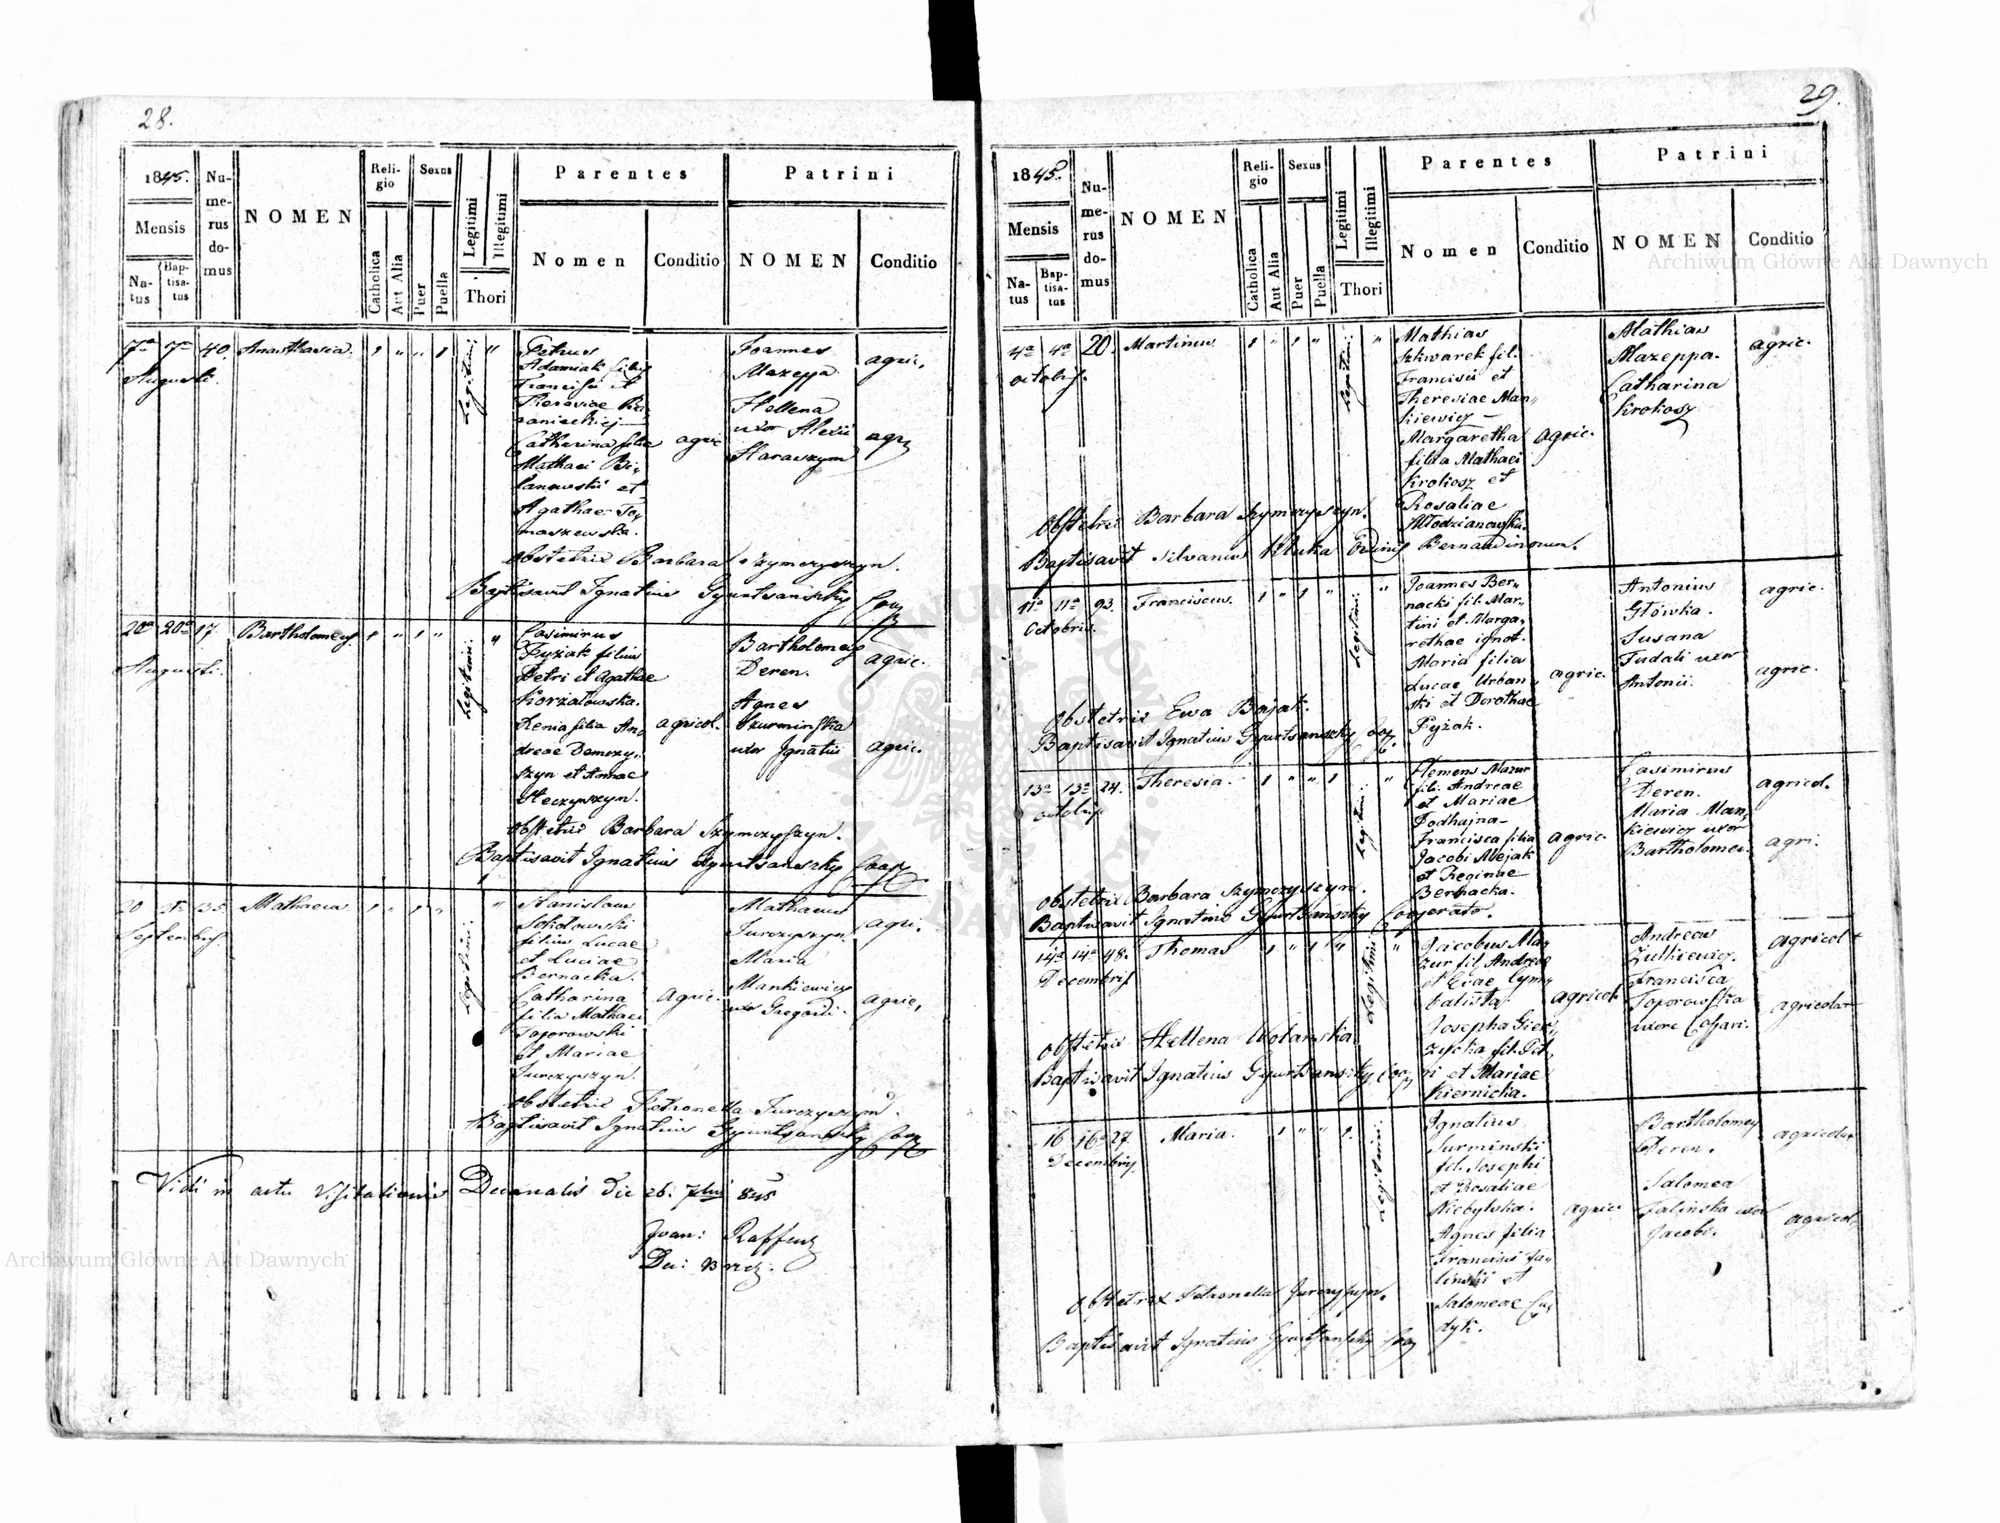 28.
1845.
Mensis
Na-
tus
Bap-
tisa-
tus
Nu-
me-
rus
do-
mus
NOMEN
Reli-
gio
Catholica
Aut Alia
Sexus
Puer
Puella
Legitimi
Illegitimi
Thori
Parentes
Nomen
Conditio
Patrini
NOMEN
Conditio
7a 7a 40 Anasthasia. 1 " " 1
Augusti.
Legitimi:
"
Petrus
Adamiak filius
Francisci et
Theresiae
Catharina filia
Mathaei Bi-
lanowski et
Agathae To-
maszewska.
agric
Joannes
Mazeppa
Hellena
uxor Alexii
Haraszym
agric.
agric
Obstetrix Barbara Szymczyszyn.
Baptisavit Ignatius Gyurtsanszky Coop
20a 20a 17. Bartholomeus 1 " 1 "
Augusti.
Legitimi:
"
Casimirus
Pyżak filius
Petri et Agathae
Korzatowska.
Xenia filia An-
dreae Demczy-
szyn et Annae
Steczyszyn.
agricol.
Bartholomeus
Deren.
Agnes
Szurminska
uxor Ignatii
agric.
agric.
Obstetrix Barbara Szymczyszyn.
Baptisavit Ignatius Gyurtsanszky Coop
20 21 35. Mathaeus 1 " 1 "
Septembris
Legitimi:
"
Stanislaus
Sokołowski
filius Lucae
et Luciae
Bernacka.
Catharina
filia Mathaei
Toporowski
et Mariae
Jurczyszyn.
agric.
Mathaeus
Jurczyszyn.
Maria
Mankiewicz
uxor Gregorii.
agri.
agric.
Obstetrix Petronella Jurczyszyn.
Baptisavit Ignatius Gyurtsanszky Coop
Vidi in actu Visitationis Decanalis die 26. 7bris 845
Joan:
29.
1845.
Mensis
Na-
tus
Bap-
tisa-
tus
Nu-
me-
rus
do-
mus
NOMEN
Reli-
gio
Catholica
Aut Alia
Sexus
Puer
Puella
Legitimi
Illegitimi
Thori
Parentes
Nomen
Conditio
Patrini
NOMEN
Conditio
4a 4a 20. Martinus 1 " 1 "
octobris.
Legitimi:
"
Mathias
Szkwarek fil.
Francisci et
Theresiae Man-
kiewicz —
Margaretha
filia Mathaei
Krokosz et
Rosaliae
Młodzianowska.
agric.
Mathias
Mazeppa.
Catharina
Krokosz
agric.
Obstetrix Barbara Szymczyszyn.
Baptisavit Silvanus Kluka Ordinis Bernardinorum.
11a 11a 93. Franciscus. 1 " 1 "
Octobris.
Legitimi:
"
Joannes Ber-
nacki fil. Mar-
tini et Marga-
rethae ignot.
Maria filia
Lucae Urban-
ski et Dorothae
Pyżak.
agric.
Antonius
Główka.
Susana
Tudali uxor
Antonii.
agric.
agric.
Obstetrix Ewa Bajak.
Baptisavit Ignatius Gyurtsanszky Coop.
13a 13a 24. Theresia. 1 " " 1
octobris
Legitimi:
"
Clemens Mazur
fil. Andreae
et Mariae
Podhajna-
Francisca filia
Jacobi Alejak
et Reginae
Bernacka.
agric.
Casimirus
Deren.
Maria Man-
kiewicz uxor
Bartholomei.
agricol.
agri.
Obstetrix Barbara Szymczyszyn.
Baptisavit Ignatius Gyurtsanszky Cooperator.
14a 14a 48. Thomas 1 " 1 "
Decembris
Legitimi
"
Jacobus Ma-
zur fil. Andreae
et Evae Cym-
balista.
Josepha Gier-
życka fil. Pet-
ri et Mariae
Kiernicka.
agricol.
Andreas
Zulkiewicz.
Francisca
Toporowska
uxore Caspari.
agricol
agricolar
Obstetrix Hellena Wolanska
Baptisavit Ignatius Gyurtsanszky Coop
16 16a 27. Maria. 1 " " 1.
Decembris
Legitimi:
Ignatius
Surminski
fil. Josephi
et Rosaliae
Niebylska.
Agnes filia
Francisci Ja-
linski et
Salomeae
agric.
Bartholomeus
Deren.
Salomea
Jalinska uxor
Jacobi.
agricolar
agricol.
Obstetrix Petronella Jurczyszyn.
Baptisavit Ignatius Gyurtsanszky Coop
Archiwum Główne Akt Dawnych
Archiwum Główne Akt Dawnych